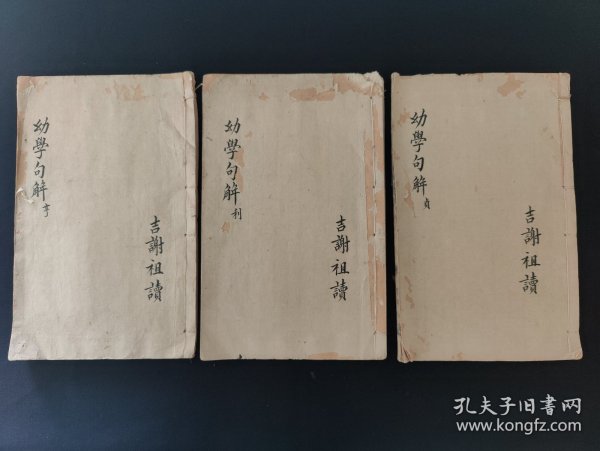 幼學句解 亨
吉謝祖讀
幼學句解 利
吉謝祖讀
幼學句解 貞
吉謝祖讀
孔夫子旧书网
www.kongfz.com